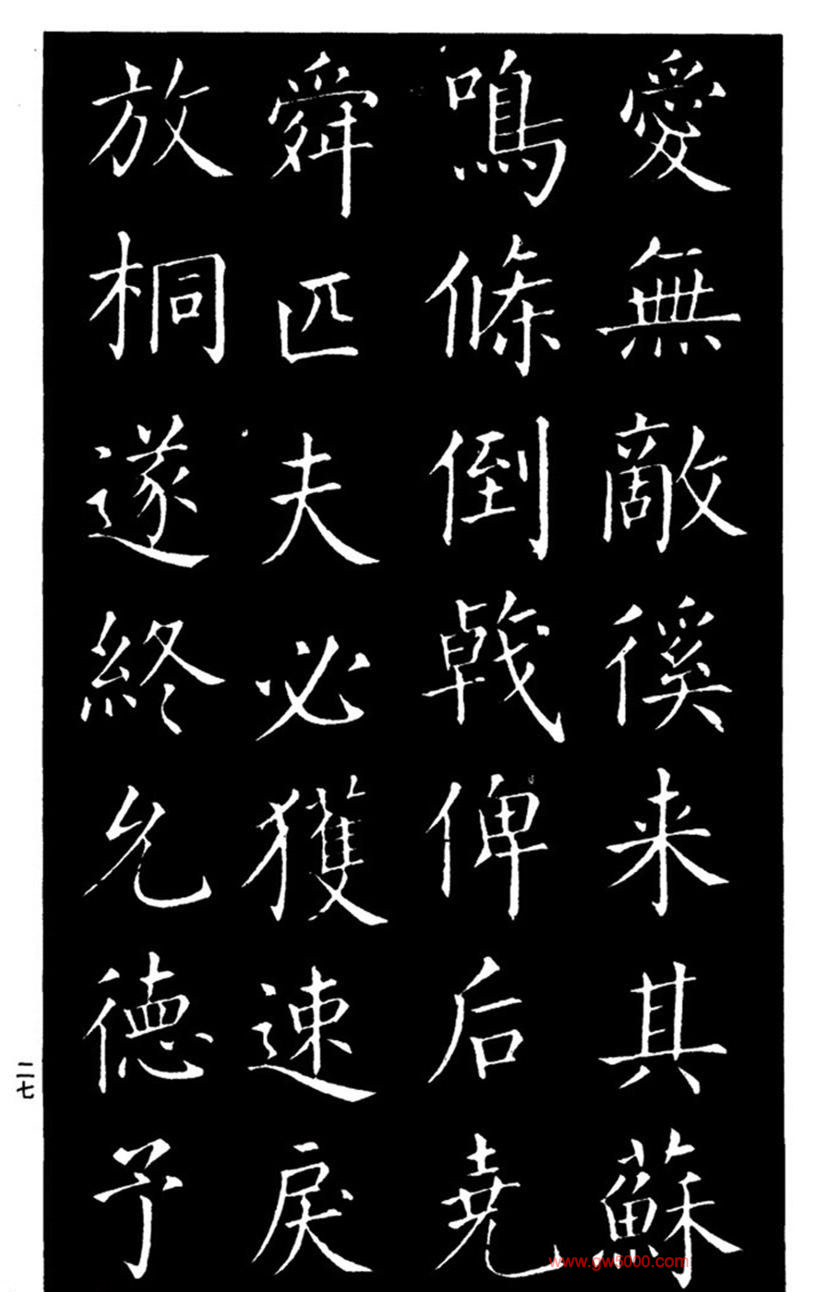 愛無敵徯来其蘇
鳴條倒戟俾后堯
舜匹夫必獲速戾
放桐遂終允德予
二七
www.gw5000.com